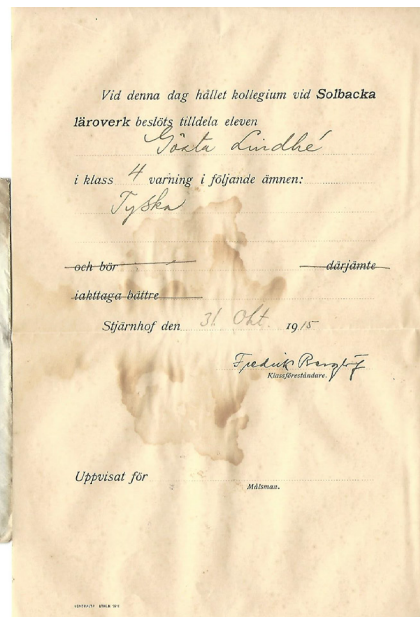 Vid denna dag hållet kollegium vid Solbacka
läroverk beslöts tilldela eleven
Gösta Lindhé
i klass 4 varning i följande ämnen:
Tyska
och bör därjämte
iakttaga bättre
Stjärnhof den 31 Okt. 1915
Fredrik
Klassföreståndare.
Uppvisat för
Målsman.